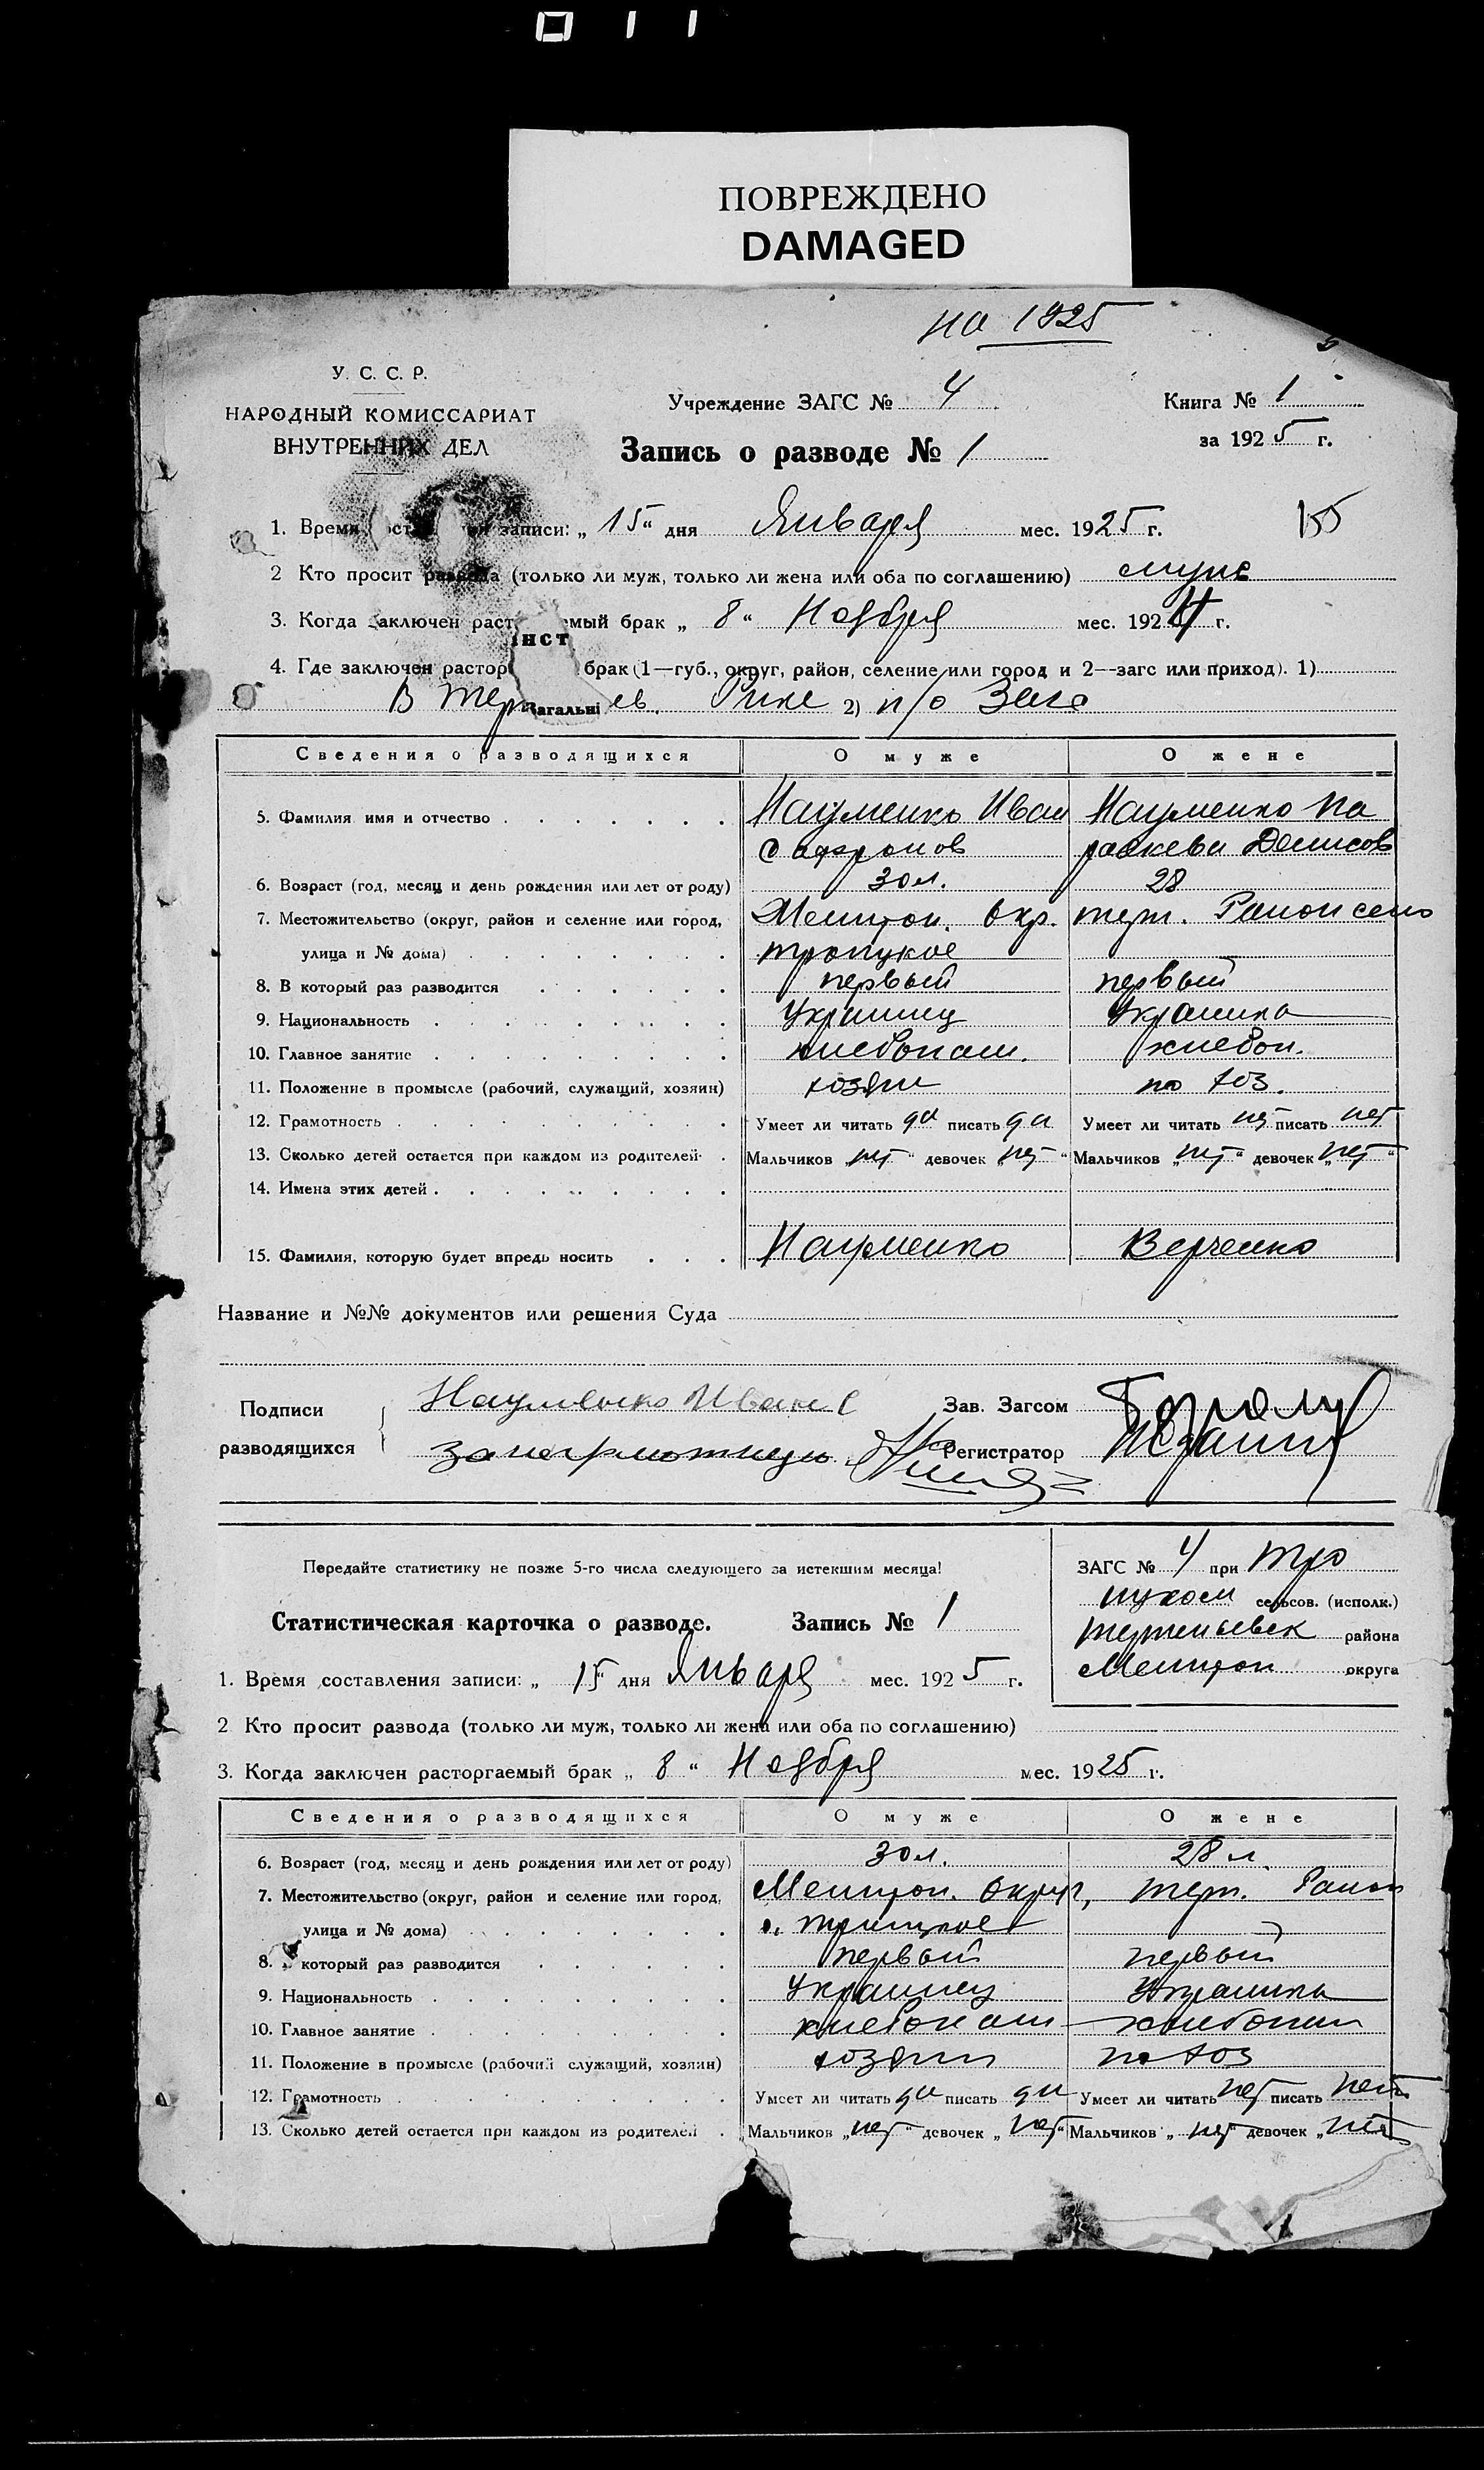 ПОВРЕЖДЕНО
DAMAGED
на 1925
У. С. С. Р.
НАРОДНЫЙ КОМИССАРИАТ
ВНУТРЕННИХ ДЕЛ
Учреждение ЗАГС № 4
Книга № 1
за 1925 г.
Запись о разводе № 1
1. Время записи: „ 15 “ дня Января мес. 1925 г.
155
2 Кто просит развода (только ли муж, только ли жена или оба по соглашению) муж
3. Когда заключен мый брак „ 8 “ Ноября мес. 1924 г.
4. Где заключен растор брак (1—губ., округ, район, селение или город и 2—загс или приход). 1)
В Тер ев. Рике 2) п/о Загс
инст
Загальні
Сведения о разводящихся О муже О жене
5. Фамилия имя и отчество Науменко Иван Науменко Па
Сафронов раскева Денисов
6. Возраст (год, месяц и день рождения или лет от роду) 30 л. 28
7. Местожительство (округ, район и селение или город, Мелитоп. Окр. терп. Район село
улица и № дома) троицкое
8. В который раз разводится первый первый
9. Национальность Украинец Украинка
10. Главное занятие хлебопаш. хлебоп.
11. Положение в промысле (рабочий, служащий, хозяин) хозяин по хоз.
12. Грамотность Умеет ли читать да писать да Умеет ли читать нет писать нет
13. Сколько детей остается при каждом из родителей Мальчиков „нет“ девочек „нет“ Мальчиков „нет“ девочек „нет“
14. Имена этих детей
15. Фамилия, которую будет впредь носить Науменко Верченко
Название и №№ документов или решения Суда
Подписи разводящихся
Науменко Иван С
за неграмотную
Зав. Загсом
Регистратор
Передайте статистику не позже 5-го числа следующего за истекшим месяца!
ЗАГС № 4 при Тро
ицком сельсов. (исполк.)
Терпеньевск района
Мелитоп округа
Статистическая карточка о разводе. Запись № 1
1. Время составления записи: „ 15 “ дня Января мес. 1925 г.
2 Кто просит развода (только ли муж, только ли жена или оба по соглашению)
3. Когда заключен расторгаемый брак „ 8 “ Ноября мес. 1925 г.
Сведения о разводящихся О муже О жене
6. Возраст (год, месяц и день рождения или лет от роду) 30 л. 28 л.
7. Местожительство (округ, район и селение или город, Мелитоп. округ, терп. Район
улица и № дома) с. троицкое
8. В который раз разводится первый первый
9. Национальность Украинец Украинка
10. Главное занятие хлебопаш хлебопаш
11. Положение в промысле (рабочий служащий, хозяин) хозяин по хоз
12. Грамотность Умеет ли читать да писать да Умеет ли читать нет писать нет
13. Сколько детей остается при каждом из родителей Мальчиков „нет“ девочек „нет“ Мальчиков „нет“ девочек „нет